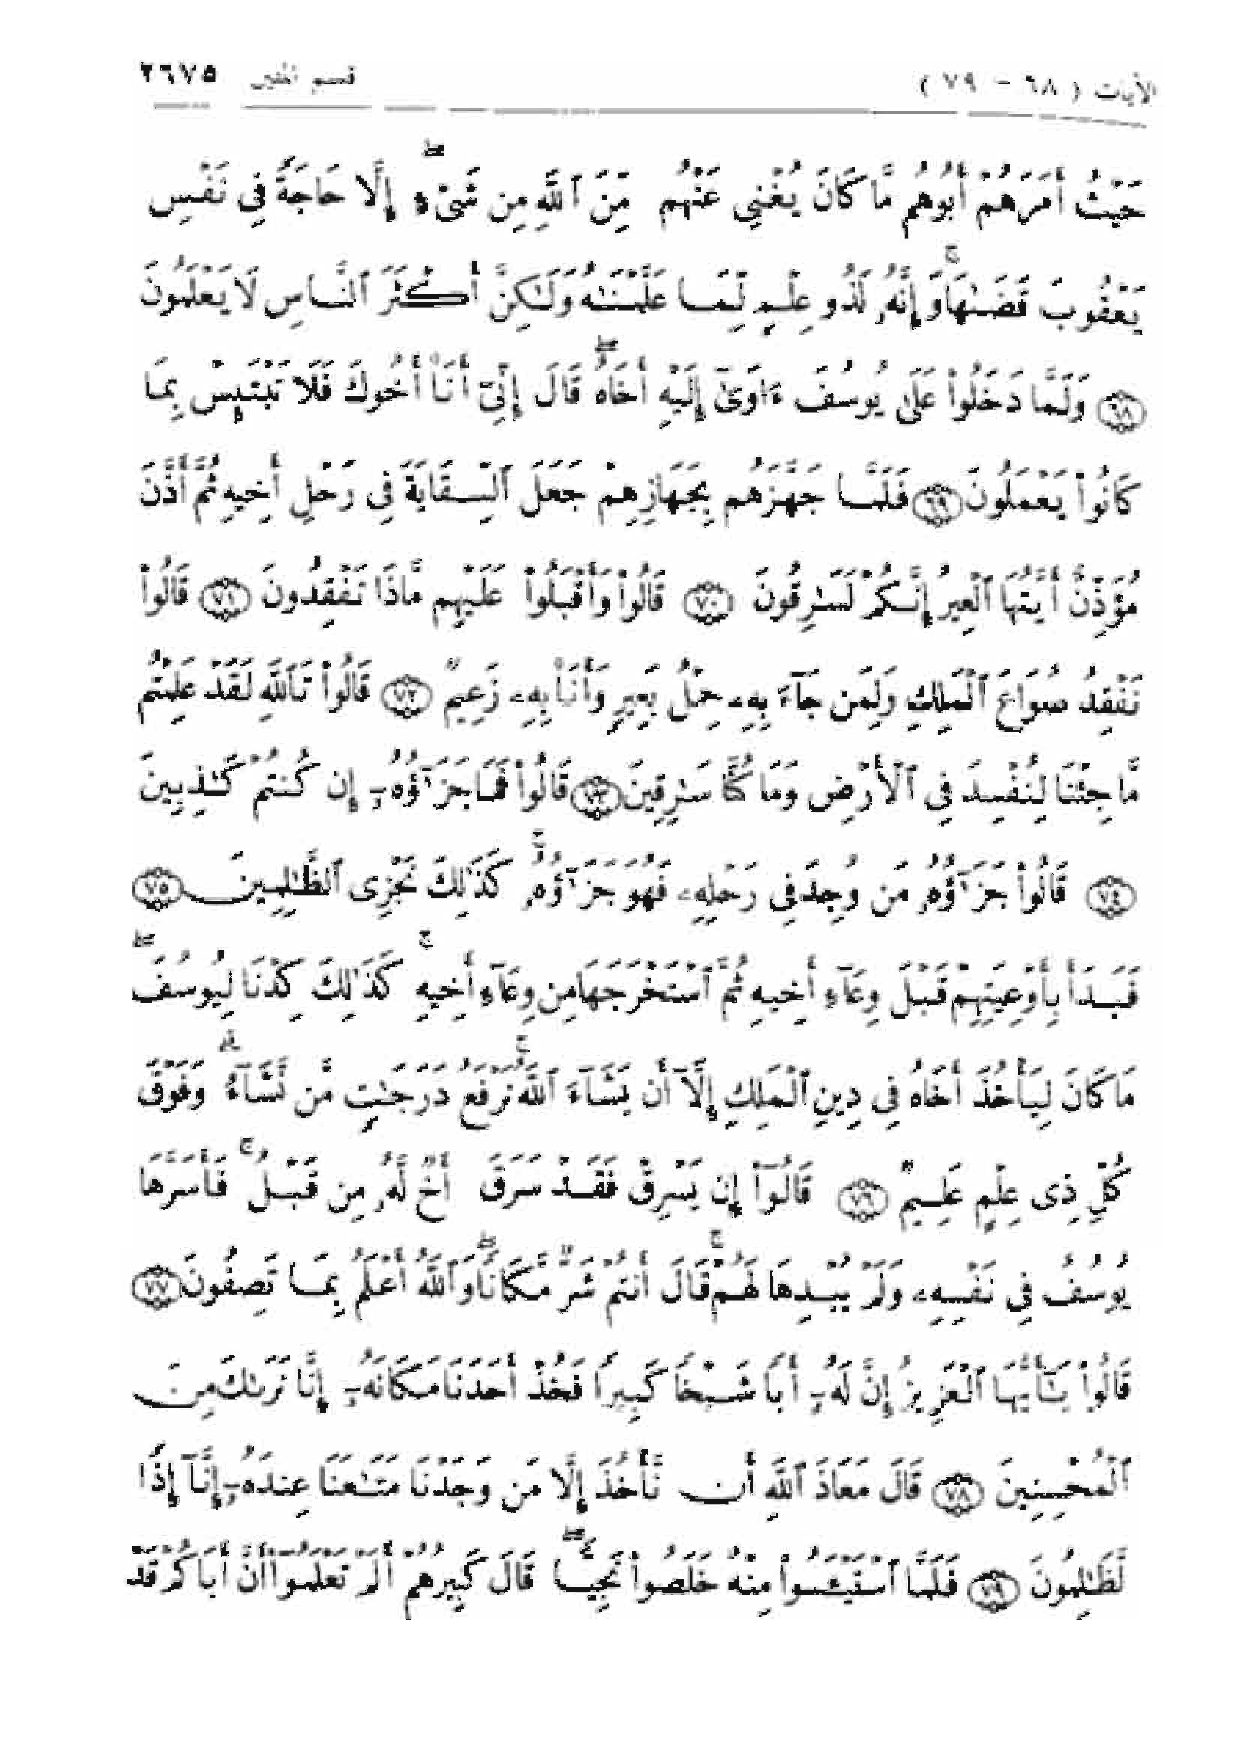 الآيات ( ٦٨ - ٧٩ ) قسم المتين ٢٦٧٥
حَيْثُ أَمَرَهُمْ أَبُوهُم مَّا كَانَ يُغْنِى عَنْهُم مِّنَ ٱللَّهِ مِن شَىْءٍ إِلَّا حَاجَةً فِى نَفْسِ
يَعْقُوبَ قَضَىٰهَا ۚ وَإِنَّهُۥ لَذُو عِلْمٍ لِّمَا عَلَّمْنَـٰهُ وَلَـٰكِنَّ أَكْثَرَ ٱلنَّاسِ لَا يَعْلَمُونَ
﴿٦٨﴾ وَلَمَّا دَخَلُوا۟ عَلَىٰ يُوسُفَ ءَاوَىٰٓ إِلَيْهِ أَخَاهُ ۖ قَالَ إِنِّىٓ أَنَا۠ أَخُوكَ فَلَا تَبْتَئِسْ بِمَا
كَانُوا۟ يَعْمَلُونَ ﴿٦٩﴾ فَلَمَّا جَهَّزَهُم بِجَهَازِهِمْ جَعَلَ ٱلسِّقَايَةَ فِى رَحْلِ أَخِيهِ ثُمَّ أَذَّنَ
مُؤَذِّنٌ أَيَّتُهَا ٱلْعِيرُ إِنَّكُمْ لَسَـٰرِقُونَ ﴿٧٠﴾ قَالُوا۟ وَأَقْبَلُوا۟ عَلَيْهِم مَّاذَا تَفْقِدُونَ ﴿٧١﴾ قَالُوا۟
نَفْقِدُ صُوَاعَ ٱلْمَلِكِ وَلِمَن جَآءَ بِهِۦ حِمْلُ بَعِيرٍ وَأَنَا۠ بِهِۦ زَعِيمٌ ﴿٧٢﴾ قَالُوا۟ تَٱللَّهِ لَقَدْ عَلِمْتُم
مَّا جِئْنَا لِنُفْسِدَ فِى ٱلْأَرْضِ وَمَا كُنَّا سَـٰرِقِينَ ﴿٧٣﴾ قَالُوا۟ فَمَا جَزَٰٓؤُهُۥٓ إِن كُنتُمْ كَـٰذِبِينَ
﴿٧٤﴾ قَالُوا۟ جَزَٰٓؤُهُۥ مَن وُجِدَ فِى رَحْلِهِۦ فَهُوَ جَزَٰٓؤُهُۥ ۚ كَذَٰلِكَ نَجْزِى ٱلظَّـٰلِمِينَ ﴿٧٥﴾
فَبَدَأَ بِأَوْعِيَتِهِمْ قَبْلَ وِعَآءِ أَخِيهِ ثُمَّ ٱسْتَخْرَجَهَا مِن وِعَآءِ أَخِيهِ ۚ كَذَٰلِكَ كِدْنَا لِيُوسُفَ ۖ
مَا كَانَ لِيَأْخُذَ أَخَاهُ فِى دِينِ ٱلْمَلِكِ إِلَّآ أَن يَشَآءَ ٱللَّهُ ۚ نَرْفَعُ دَرَجَـٰتٍ مَّن نَّشَآءُ ۗ وَفَوْقَ
كُلِّ ذِى عِلْمٍ عَلِيمٌ ﴿٧٦﴾ قَالُوٓا۟ إِن يَسْرِقْ فَقَدْ سَرَقَ أَخٌ لَّهُۥ مِن قَبْلُ ۚ فَأَسَرَّهَا
يُوسُفُ فِى نَفْسِهِۦ وَلَمْ يُبْدِهَا لَهُمْ ۚ قَالَ أَنتُمْ شَرٌّ مَّكَانًا ۖ وَٱللَّهُ أَعْلَمُ بِمَا تَصِفُونَ ﴿٧٧﴾
قَالُوا۟ يَـٰٓأَيُّهَا ٱلْعَزِيزُ إِنَّ لَهُۥٓ أَبًا شَيْخًا كَبِيرًا فَخُذْ أَحَدَنَا مَكَانَهُۥٓ ۖ إِنَّا نَرَىٰكَ مِنَ
ٱلْمُحْسِنِينَ ﴿٧٨﴾ قَالَ مَعَاذَ ٱللَّهِ أَن نَّأْخُذَ إِلَّا مَن وَجَدْنَا مَتَـٰعَنَا عِندَهُۥٓ إِنَّآ إِذًا
لَّظَـٰلِمُونَ ﴿٧٩﴾ فَلَمَّا ٱسْتَيْـَٔسُوا۟ مِنْهُ خَلَصُوا۟ نَجِيًّا ۖ قَالَ كَبِيرُهُمْ أَلَمْ تَعْلَمُوٓا۟ أَنَّ أَبَاكُمْ قَدْ